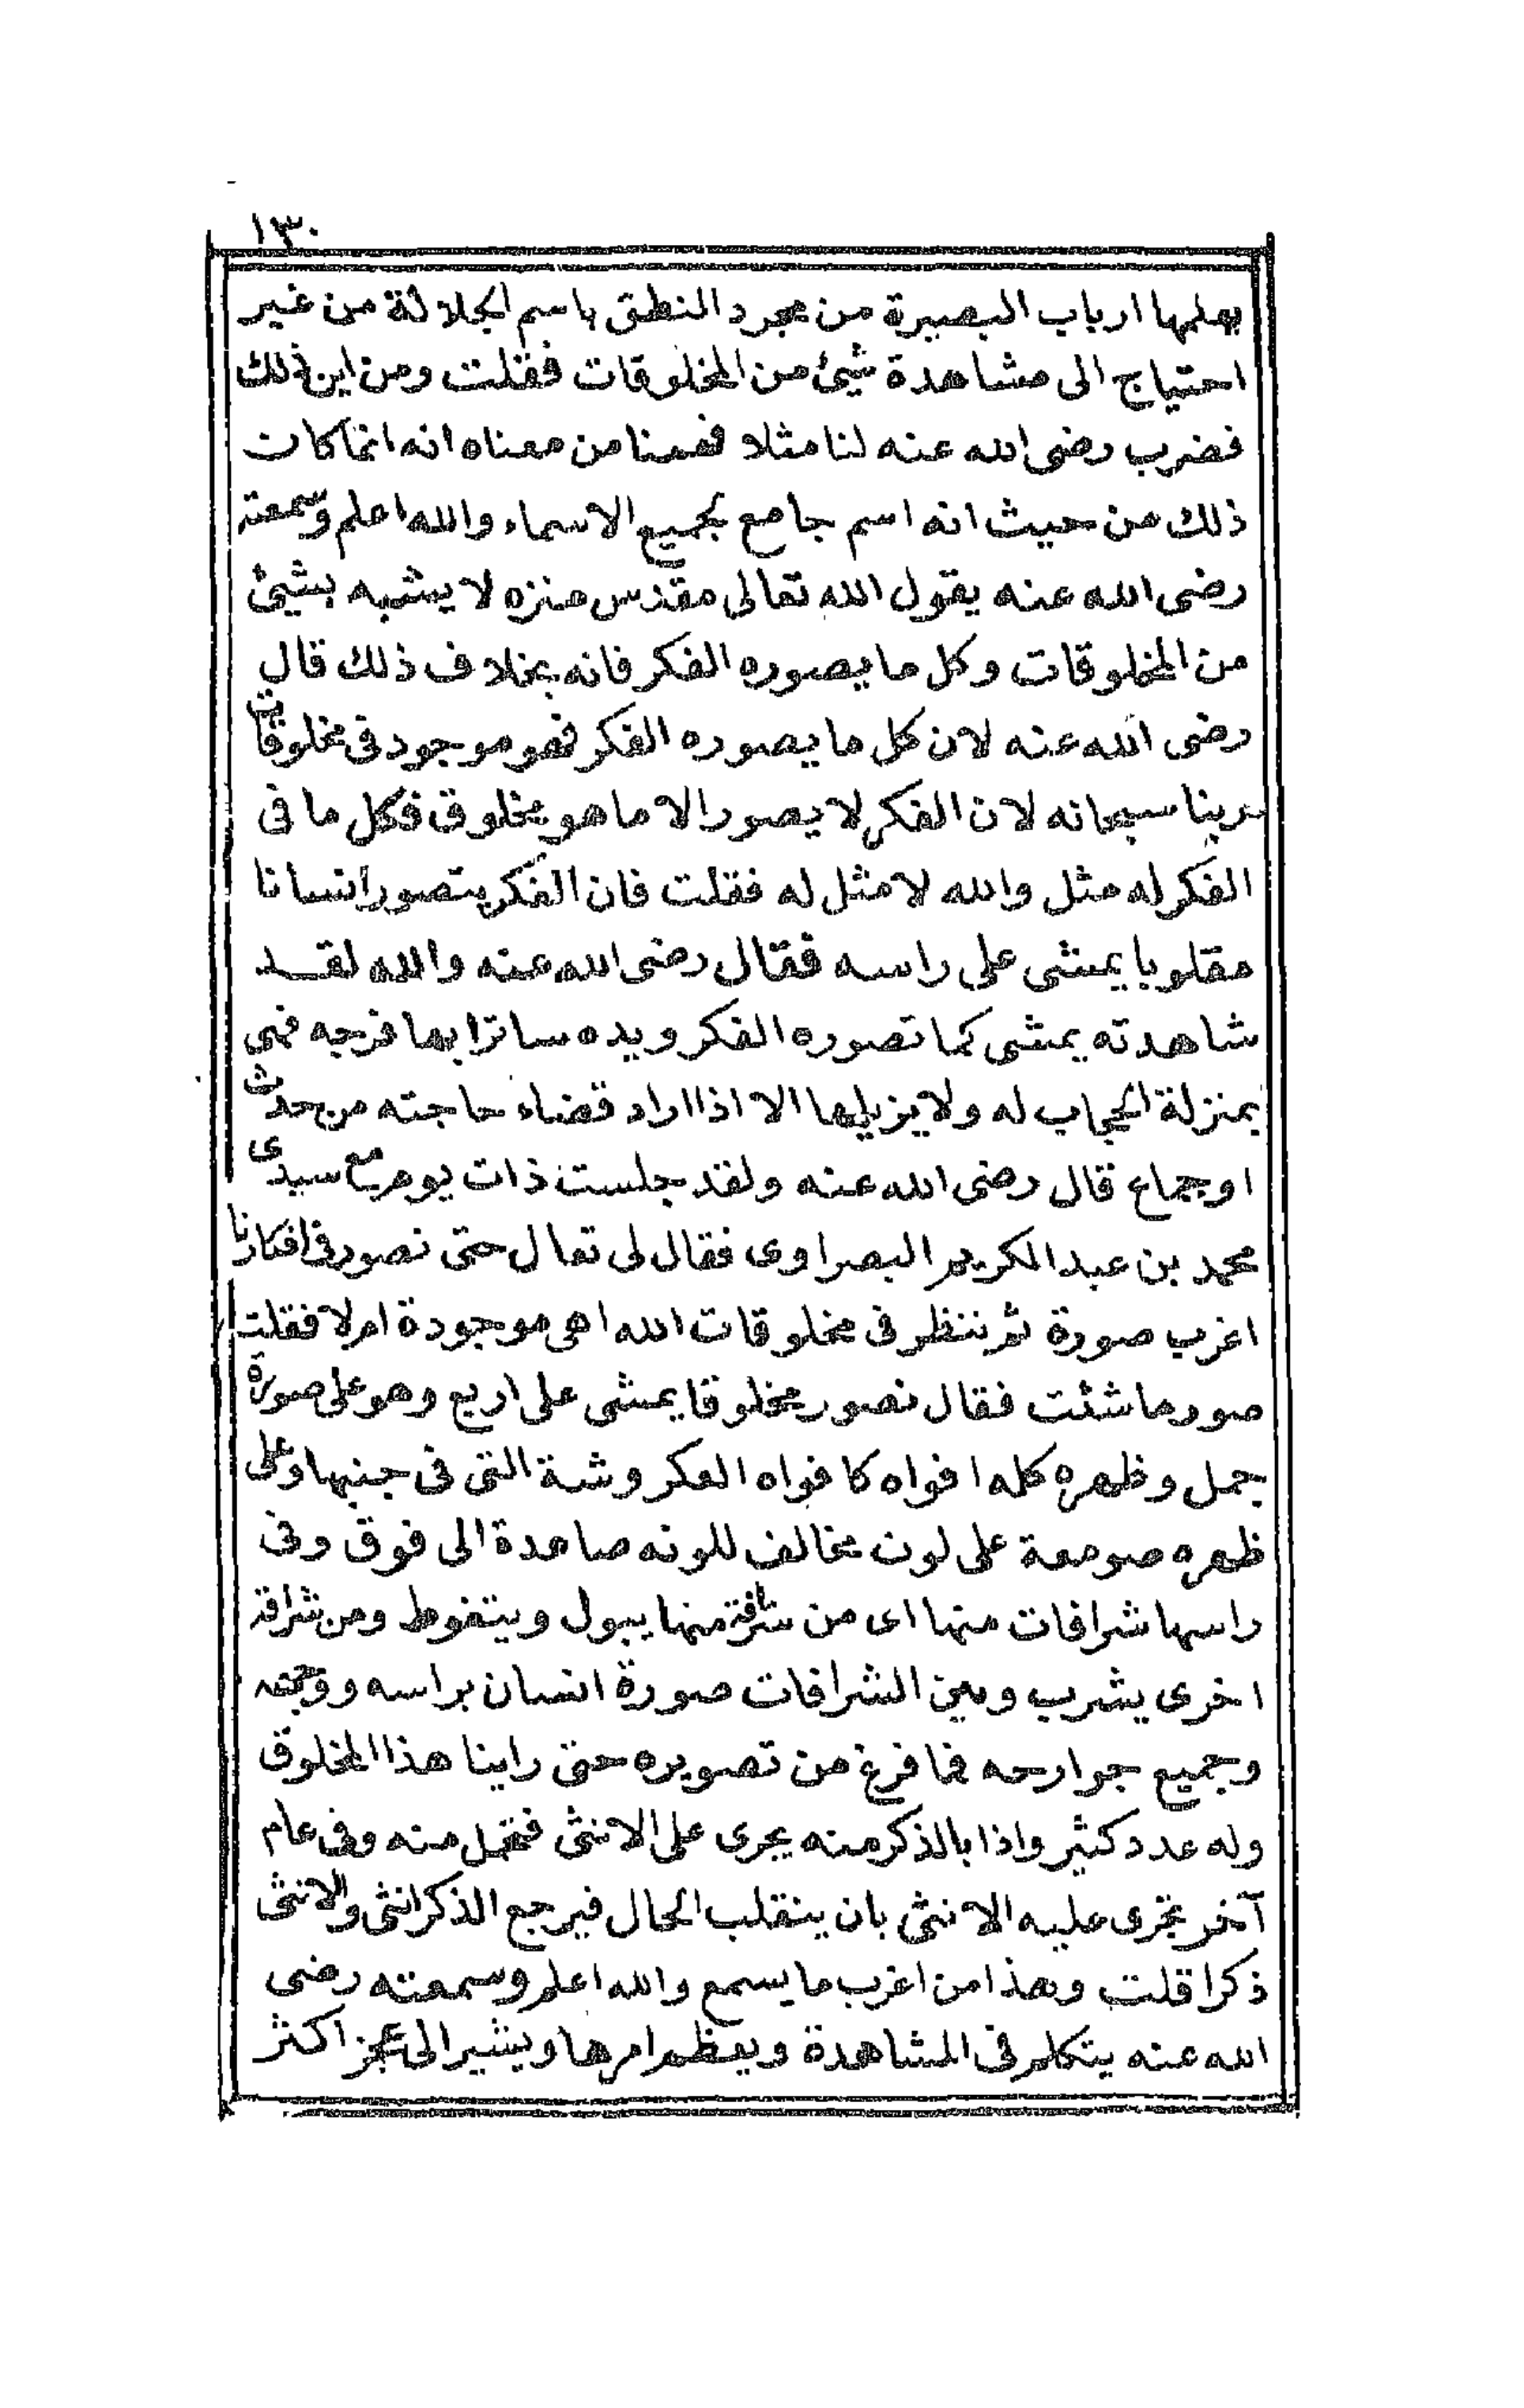 ١٣٠
يعلمها ارباب البصيرة من مجرد النطق باسم الجلالة من غير
احتياج الى مشاهدة شيئ من المخلوقات فقلت ومن اين ذلك
فضرب رضى الله عنه لنا مثلا فهمنا من معناه انه انما كان
ذلك من حيث انه اسم جامع لجميع الاسماء والله اعلم وسمعته
رضى الله عنه يقول الله تعالى مقدس منزه لا يشبه بشيئ
من المخلوقات وكل ما يصوره الفكر فانه بخلاف ذلك قال
رضى الله عنه لان كل ما يصوره الفكر فهو موجود فى مخلوقات
ربنا سبحانه لان الفكر لا يصور الا ما هو مخلوق فكل ما فى
الفكر له مثل والله لا مثل له فقلت فان الفكر يتصور انسانا
مقلوبا يمشى على راسه فقال رضى الله عنه والله لقد
شاهدته يمشى كما تصوره الفكر ويده ساترا بها فرجه فهى
بمنزلة الحجاب له ولا يزيلها الا اذا اراد قضاء حاجته من حدث
او جماع قال رضى الله عنه ولقد جلست ذات يوم مع سيدى
محمد بن عبد الكريم البصراوى فقال لى تعال حتى نصور فى افكارنا
اغرب صورة ثم ننظر فى مخلوقات الله اهى موجودة ام لا فقلت
صور ما شئت فقال نصور مخلوقا يمشى على اربع وهو على صورة
جمل وظهره كله افواه كافواه العكروشة التى فى جنبها وعلى
ظهره صومعة على لون مخالف للونه صاعدة الى فوق وفى
راسها شرافات منها اى من شرافة منها يبول ويتغوط ومن شرافة
اخرى يشرب وبين الشرافات صورة انسان براسه ووجهه
وجميع جوارحه فما فرغ من تصويره حتى راينا هذا المخلوق
وله عدد كثير واذا بالذكر منه يجرى على الانثى فتحمل منه وفى عام
آخر تجرى عليه الانثى بان ينقلب الحال فيرجع الذكر انثى والانثى
ذكرا قلت وهذا من اغرب ما يسمع والله اعلم وسمعته رضى
الله عنه يتكلم فى المشاهدة ويعظم امرها ويشير الى عجز اكثر